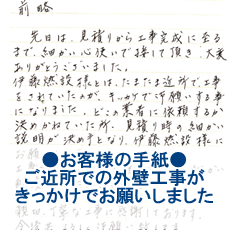 前略
先日は、見積りから工事完成に至る
まで、細かい心使いで接して頂き、大変
ありがとうございました。
伊藤燃設様とは、たまたま近所で、工事
をされていたのが、キッカケで御願いする事
になりました。どこの業者に依頼するか
決めかねていた所、見積り時の細かい
説明が決め手となり、伊藤燃設様に
お願
●お客様の手紙●
ご近所での外壁工事が
きっかけでお願いしました
丁寧な工事に感謝しております。
今後共よろしく御願い致します